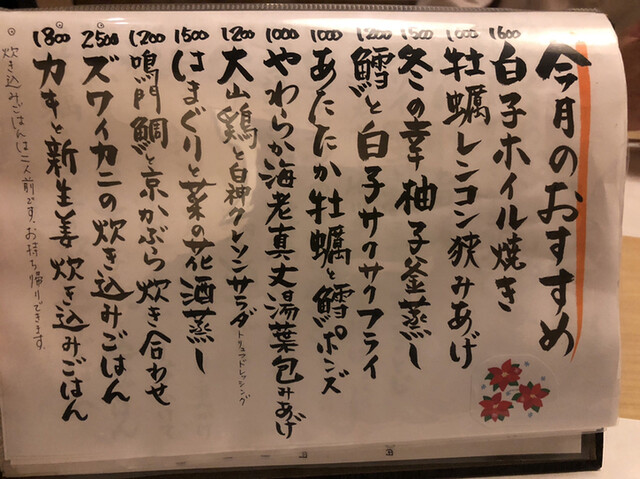 今月のおすすめ
1600 白子ホイル焼き
1000 牡蠣レンコン狭みあげ
1500 冬の幸柚子釜蒸し
1200 鱈と白子サクサクフライ
1000 あたたか牡蠣と鱈ポンズ
1000 やわらか海老真丈湯葉包みあげ
1200 大山鶏と白神クレソンサラダ トリュフドレッシング
1500 はまぐりと菜の花酒蒸し
1200 鳴門鯛と京かぶら炊き合わせ
2500 ズワイカニの炊き込みごはん
1800 カキと新生姜炊き込みごはん
◎炊き込みごはんは二人前です。お持ち帰りできます。